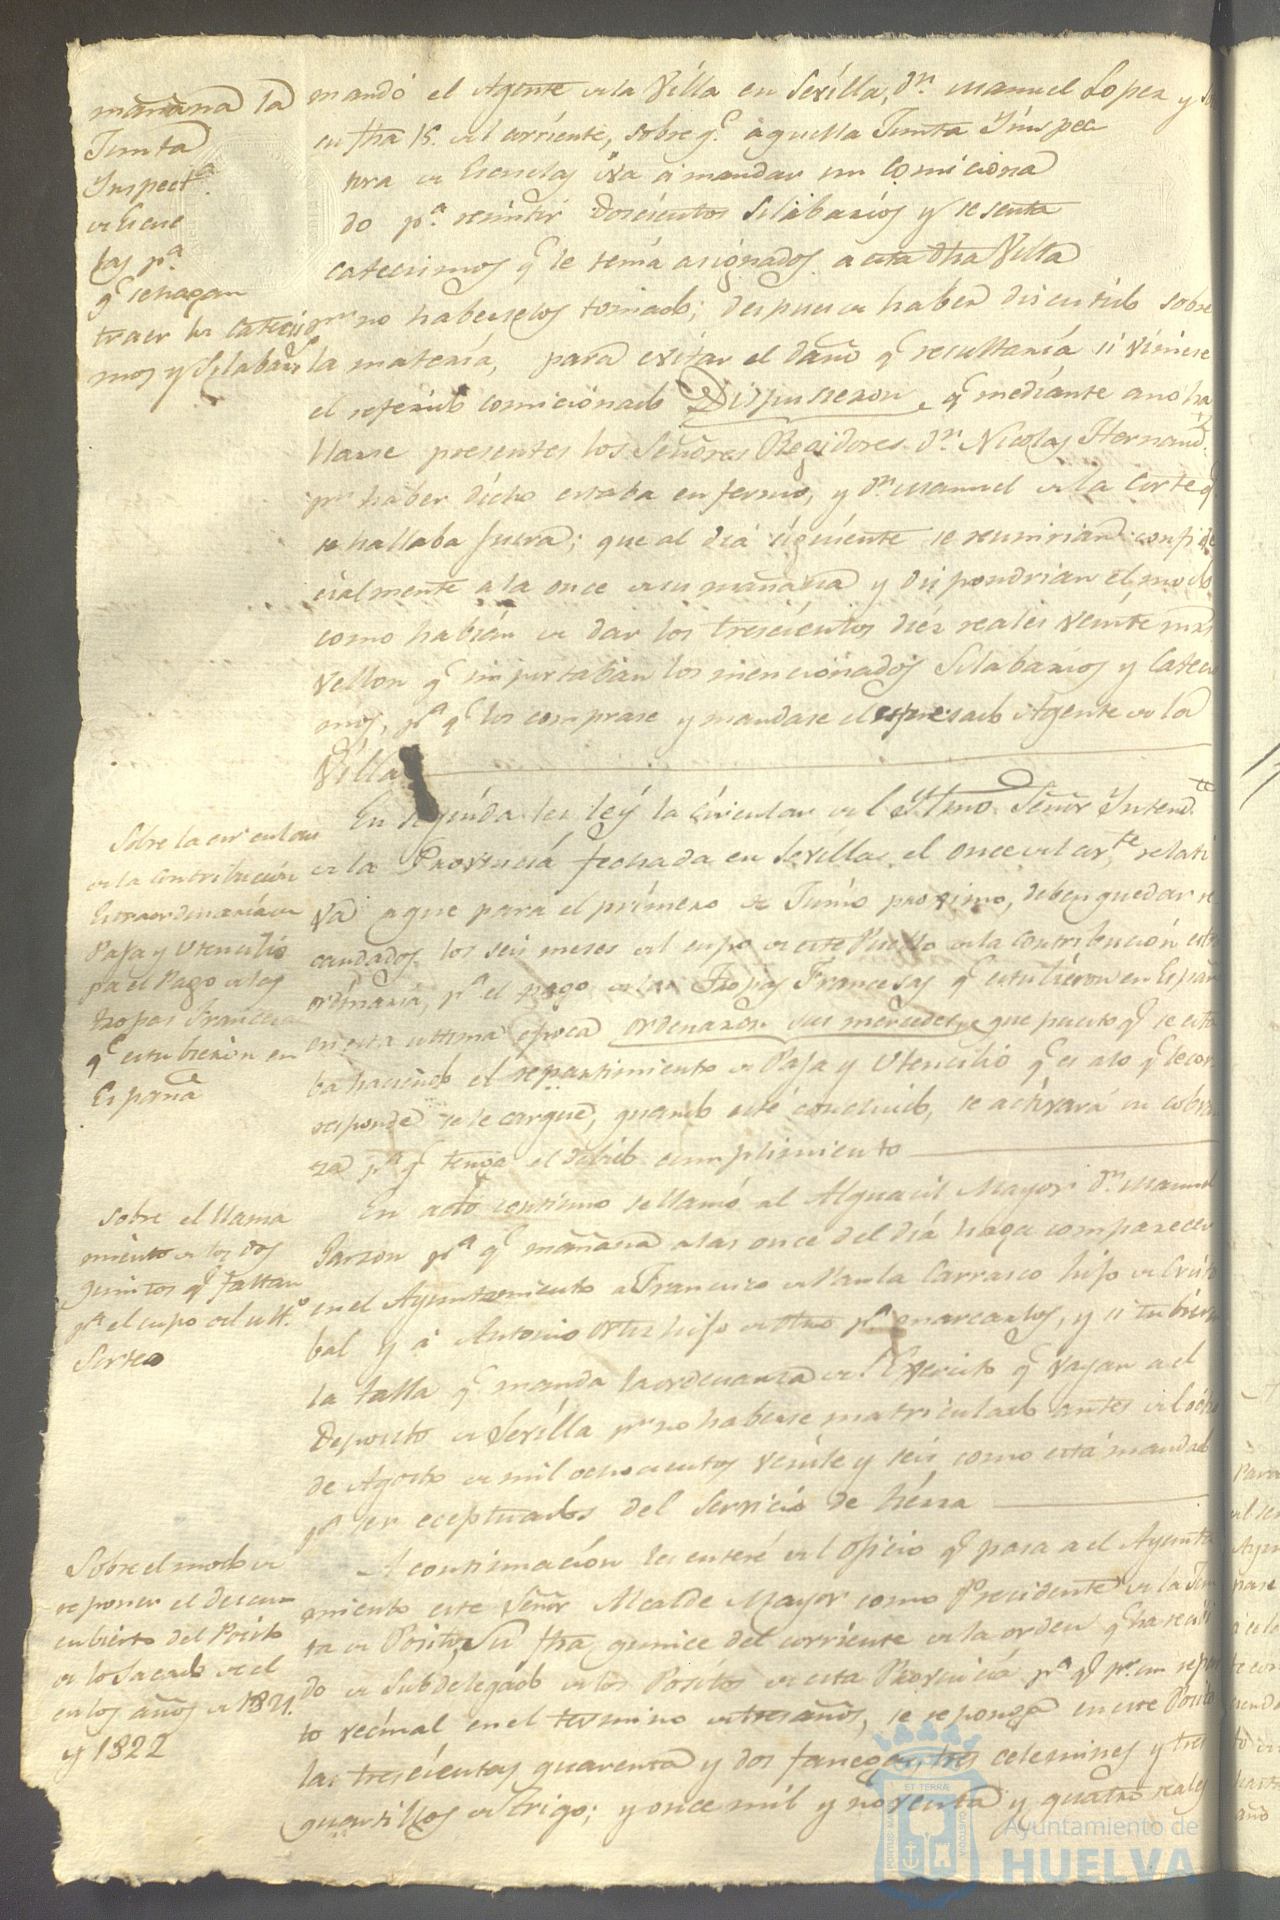 mañana la
Junta
Inspect.ª
de Escue
las p.ª
q.e se hagan
traer los Catecis
mos y Silabarios
mandó el Agente de la Villa en Sevilla, D.n Manuel Lopez y
en fha 15. del corriente, sobre q.e aquella Junta Ynspec
tora de Escuelas iva à mandar un Comiciona
do p.ª remitir doscientos Silabarios y sesenta
catecismos q.e le tenia asignados a esta dha Villa
p.r no haberselos tomado; despues de haber discutido sobre
la materia, para evitar el daño q.e resultaria si viniese
el referido comicionado Dispusieron, q.e mediante a no ha
llarse presentes los Señores Regidores D.n Nicolas Hernand.
p.r haber dicho estaba enfermo, y D.n Manuel de la Corte q.e
se hallaba fuera; que al dia siguiente se reunirian confide
cialmente a la once de su mañana y dispondrian el modo
como habian de dar los trescientos diez reales veinte mrs
vellon q.e importaban los mencionados Silabarios y Catecis
mos, p.ª q.e los comprase y mandase el espresado Agente de la
Villa
Sobre la circular
de la contribucion
Extraordinaria de
Paja y Utencilio
pa el Pago de las
tropas Francesas
q.e estubieron en
España
En seguida les leý la circular del Yltmo. Señor Yntend.te
de la Provincia fechada en Sevilla, el once del cor.te relati
va a que para el primero de Junio proximo, deben quedar re
caudados los seis meses del cupo de este Pueblo de la Contribucion estra
ordinaria, p.ª el pago de las Tropas Francesas q.e estubieron en España
en esta ultima epoca ordenaron sus mercedes, que puesto q.e se esta
ba haciendo el repartimiento de Paja y Utencilio q.e es a lo q.e le cor
responde se le cargue, quando esté concluido, se activará su cobran
za p.ª q.e tenga el debido cumplimiento
Sobre el llama
miento de los dos
q.e faltan
p.ª el cupo del ult.º
Sorteo
En acto continuo se llamó al Alguacil Mayor D.n Manuel
Garzon p.ª q.e mañana a las once del dia haga comparecer
en el Ayuntamiento a Francisco de Paula Carrasco hijo de Cristo
bal y à Antonio Ortiz hijo de otro p.ª marcarlos, y si tubieren
la talla q.e manda la ordenanza del Exercito q.e vayan a el
Deposito de Sevilla p.r no haberse matriculado antes del ocho
de Agosto de mil ochocientos veinte y seis como está mandado
p.r ser eceptuados del Servicio de tierra
Sobre el modo de
reponer el descu
cubierto del Posito
de lo Sacado de el
en los años de 1821.
y 1822
A continuacion les enteré del oficio q.e pasa a el Ayunta
miento este Señor Alcalde Mayor como Precidente de la Jun
ta de Positos, su fha quince del corriente de la orden q.e ha recibi
do de Subdelegado de los Positos de esta Provincia p.ª q.e p.r un repar
to vecinal en el termino de tres años, se reponga en este Posito
las trescientas quarenta y dos fanegas, tres celemines y tres
quartillos de trigo; y once mil y noventa y quatro reales
Ayuntamiento de
HUELVA